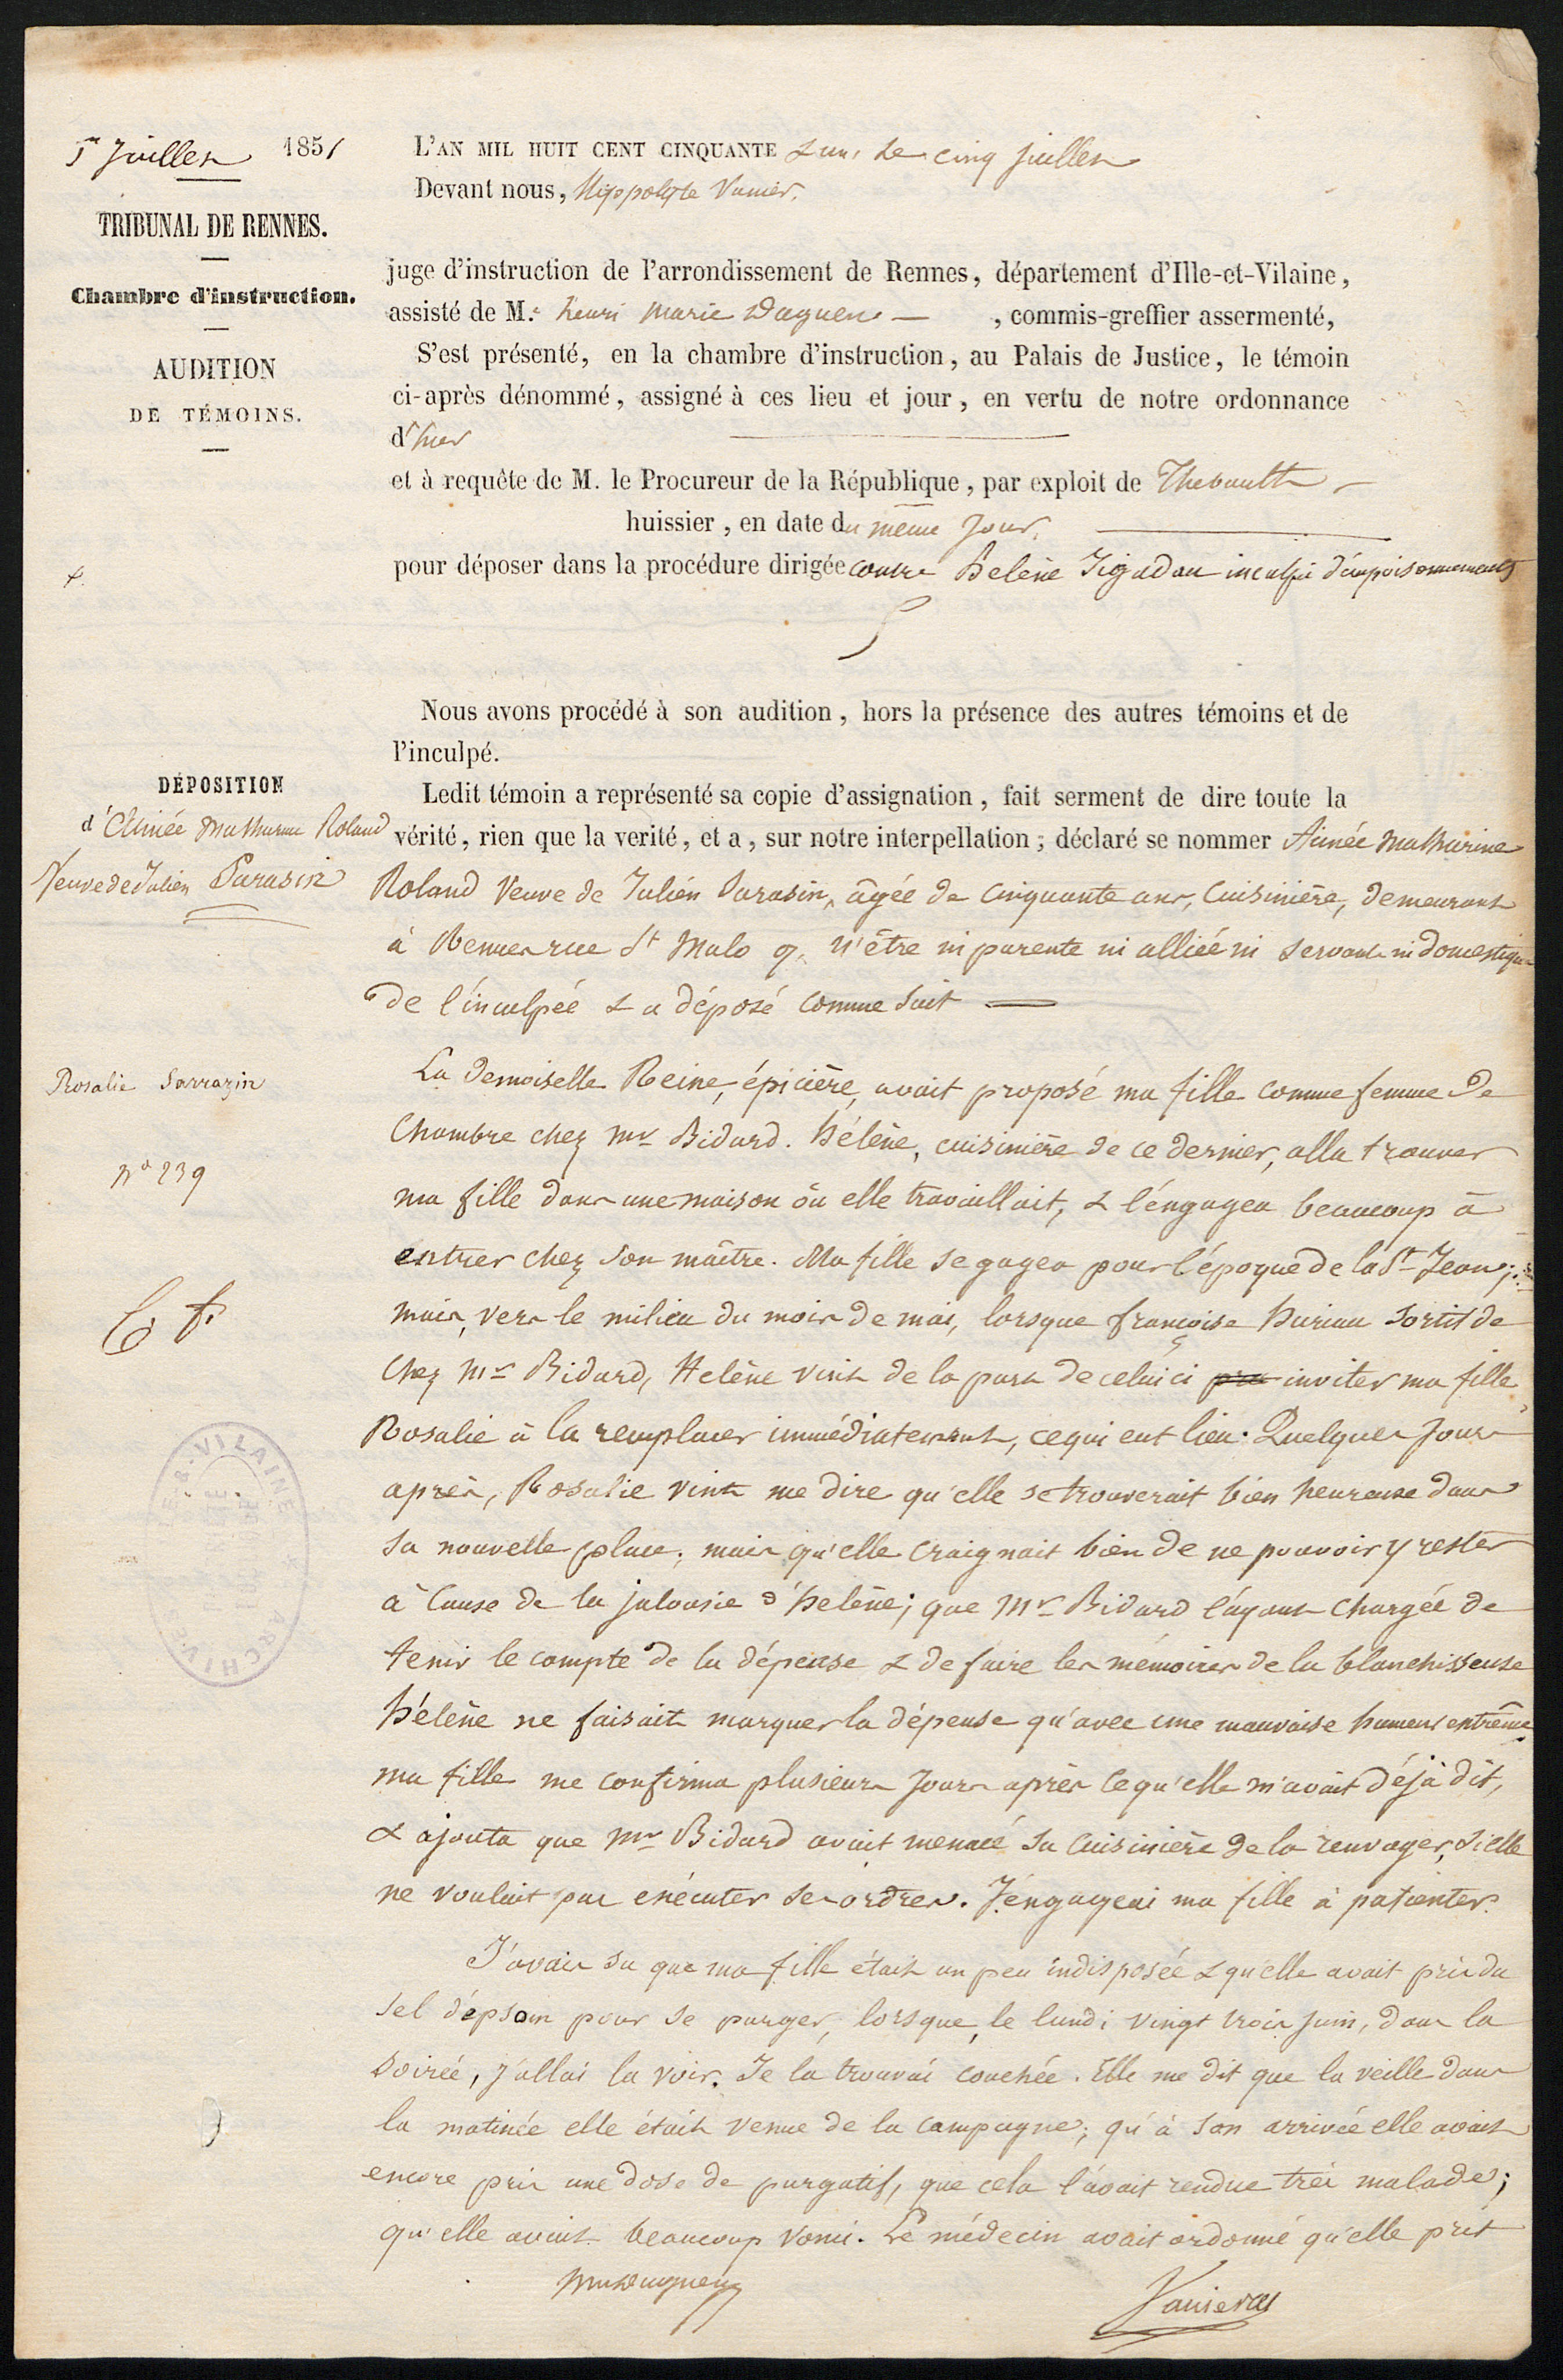 5 Juillet 1851
TRIBUNAL DE RENNES.
Chambre d'instruction.
AUDITION
DE TÉMOINS.
L'AN MIL HUIT CENT CINQUANTE & un, le cinq juillet
Devant nous, Hippolyte Vanier,
juge d'instruction de l'arrondissement de Rennes, département d'Ille-et-Vilaine,
assisté de M.e henri Marie Daguen , commis-greffier assermenté,
S'est présenté, en la chambre d'instruction, au Palais de Justice, le témoin
ci-après dénommé, assigné à ces lieu et jour, en vertu de notre ordonnance
d'hier
et à requête de M. le Procureur de la République, par exploit de Thebault
huissier, en date du même jour,
pour déposer dans la procédure dirigée contre helène Jégadau inculpée d'empoisonnements
Nous avons procédé à son audition, hors la présence des autres témoins et de
l'inculpé.
DÉPOSITION
d'Aimée Mathurine Roland
Veuve de Julien Sarasin
Ledit témoin a représenté sa copie d'assignation, fait serment de dire toute la
vérité, rien que la verité, et a, sur notre interpellation; déclaré se nommer Aimée Mathurine
Roland Veuve de Julien Sarasin, âgée de cinquante ans, cuisinière, demeurant
à Rennes rue St Malo 9, n'être ni parente ni alliée ni servante ni domestique
de l'inculpée & a déposé comme suit
Rosalie Sarrazin
No 239
La Demoiselle Reine, épicière, avait proposé ma fille comme femme de
Chambre chez Mr Bidard. hélène, cuisinière de ce dernier, alla trouver
ma fille dans une maison où elle travaillait, & l'engagea beaucoup à
entrer chez son maître. Ma fille se gagea pour l'époque de la St Jean;
mais, vers le milieu du mois de mai, lorsque françoise huriau sortit de
chez Mr Bidard, Helène vint de la part de celui ci inviter ma fille
Rosalie à la remplacer immédiatement, ce qui eut lieu. Quelques jours
après, Rosalie vint me dire qu'elle se trouverait bien heureuse dans
sa nouvelle place, mais qu'elle craignait bien de ne pouvoir y rester
à cause de la jalousie d'helène; que Mr Bidard l'ayant chargée de
tenir le compte de la dépense & de faire les mémoires de la blanchisseuse
hélène ne faisait marquer la dépense qu'avec une mauvaise humeur extrême
ma fille me confirma plusieurs jours après ce qu'elle m'avait déjà dit,
& ajouta que Mr Bidard avait menacé sa cuisinière de la renvoyer, si elle
ne voulait pas exécuter ses ordres. J'engageai ma fille à patienter.
J'avais su que ma fille était un peu indisposée & qu'elle avait pris du
sel d'epsom pour se purger, lorsque, le lundi vingt trois juin, dans la
soirée, j'allai la voir. Je la trouvai couchée. Elle me dit que la veille dans
la matinée elle était venue de la campagne; qu'à son arrivée elle avait
encore pris une dose de purgatif, que cela l'avait rendue très malade;
qu'elle avait beaucoup vomi. Le médecin avait ordonné qu'elle prit
Vanier